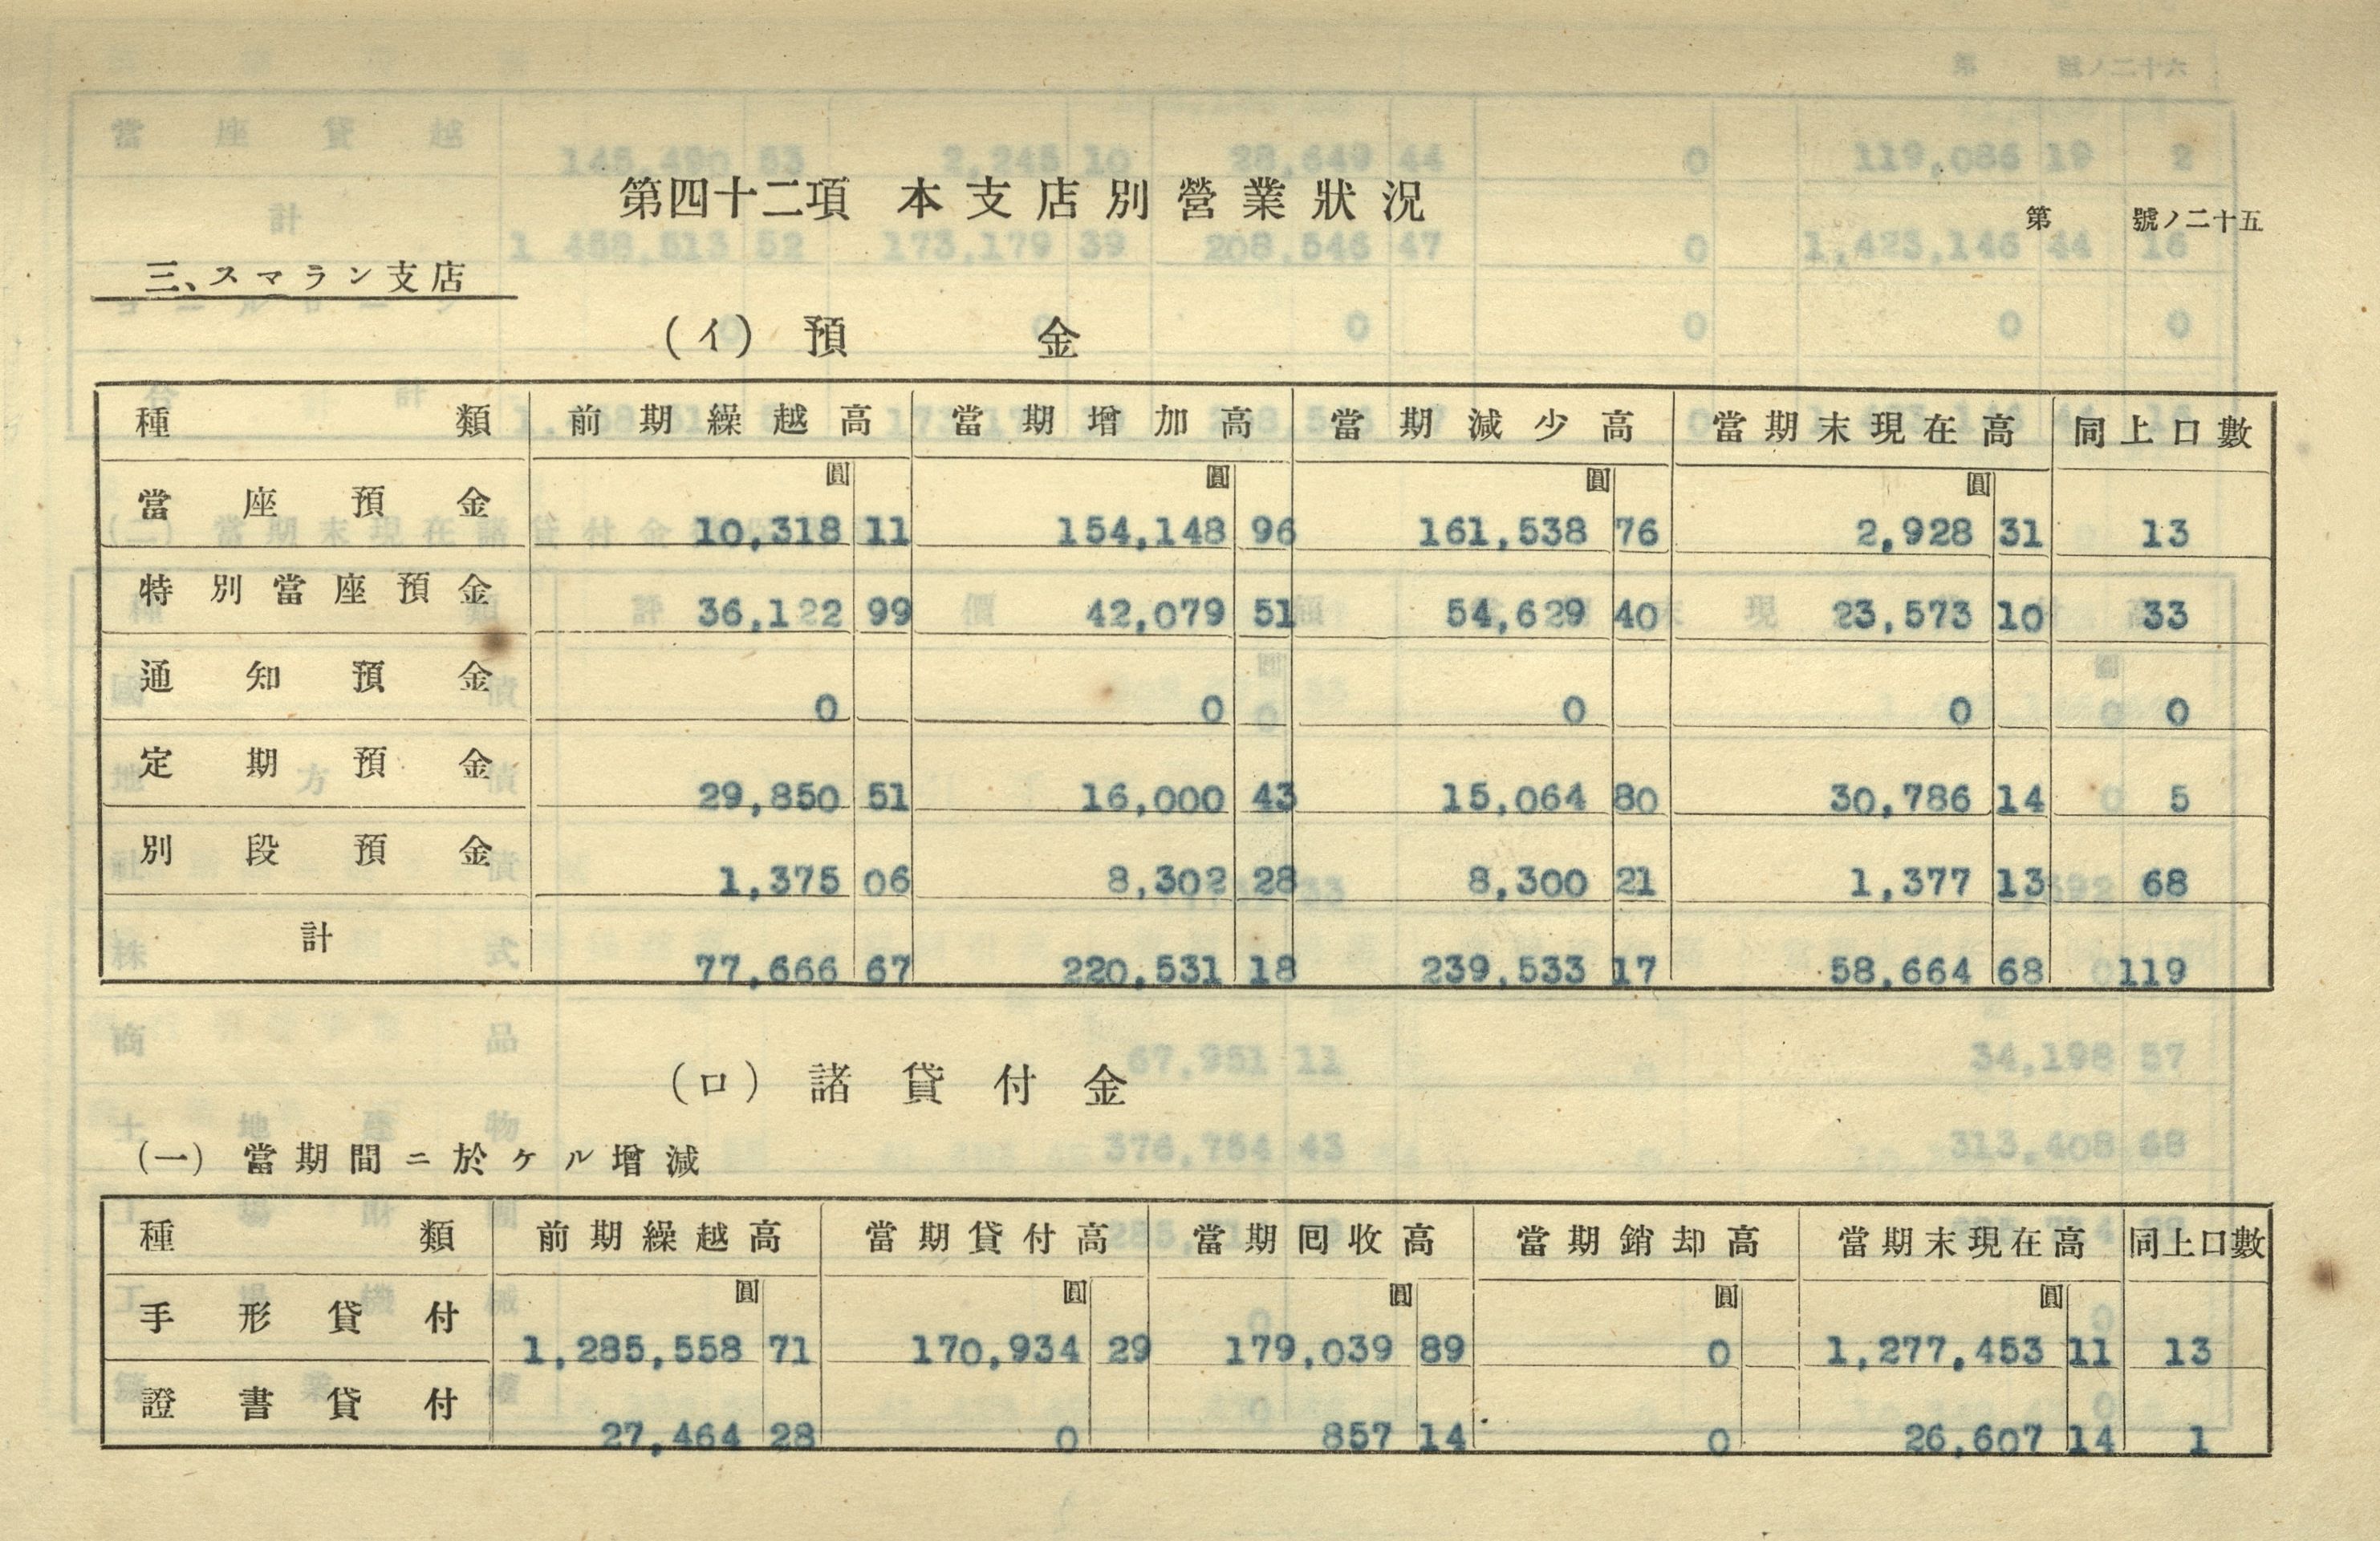 第四十二項 本支店別營業狀況
第 號ノ二十五
三、スマラン支店
(イ) 預金
種類 前期繰越高 當期增加高 當期減少高 當期末現在高 同上口數
圓 圓 圓 圓
當座預金 10,318 11 154,148 96 161,538 76 2,928 31 13
特別當座預金 36,122 99 42,079 51 54,629 40 23,573 10 33
通知預金 0 0 0 0 0
定期預金 29,850 51 16,000 43 15,064 80 30,786 14 5
別段預金 1,375 06 8,302 28 8,300 21 1,377 13 68
計 77,666 67 220,531 18 239,533 17 58,664 68 119
(ロ) 諸貸付金
(一) 當期間ニ於ケル增減
種類 前期繰越高 當期貸付高 當期囘收高 當期銷却高 當期末現在高 同上口數
圓 圓 圓 圓 圓
手形貸付 1,285,558 71 170,934 29 179,039 89 0 1,277,453 11 13
證書貸付 27,464 28 0 857 14 0 26,607 14 1